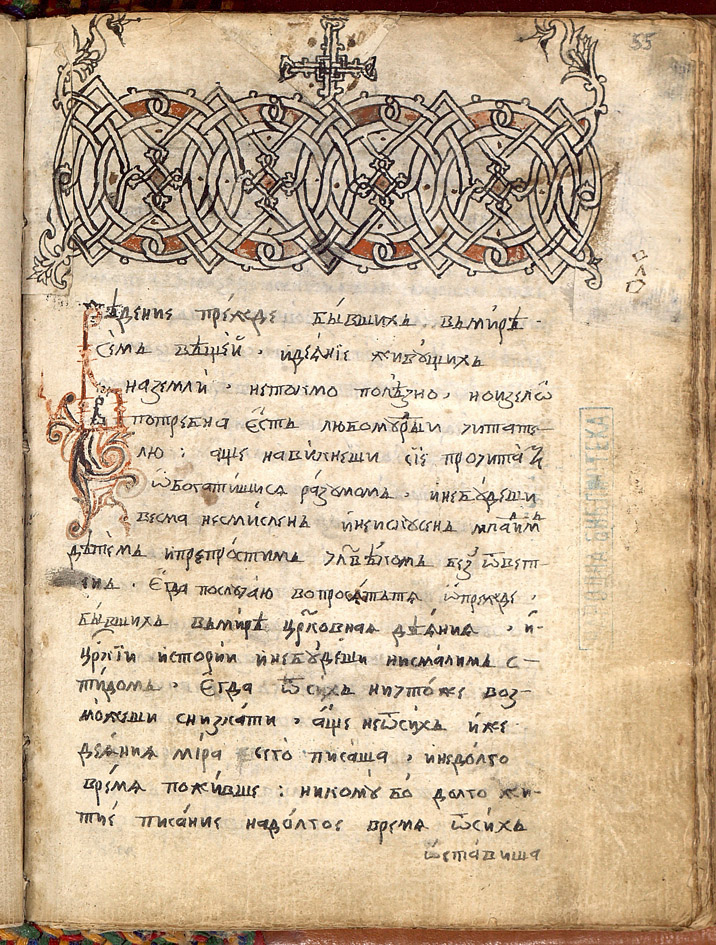 55
Вѣдение прежде бывшихъ въмирѣ
семъ вещей · идеѧніе живущихъ
наземли · нетокмо полѣзно, ноизелѡ
потребна єсть любомꙋдрꙋи читате-
лю : аще навикнеши сіе прочита
ѡбогатишися разумомъ · инебудеши
весма несмисленъ инеискусенъ
дѣтемъ ипрепростимъ члв҃комъ без ѿвет-
енъ · єгда послꙋчаю вопросѧтъ тѧ ѡпрежде
бывшихъ вьмирѣ црк҃овнаѧ дѣѧниѧ · и-
црк҃їи истории инебудеши нисмалимъ с-
тидомъ · Єгда ѿ сихъ ничтоже воз-
можеши снискати · аще неѿсихъ иже
деѧниѧ мира сего писаша · инедолго
времѧ поживше : никому бо долго жи-
тие писание надолгое времѧ ѿсихъ
ѡставиша